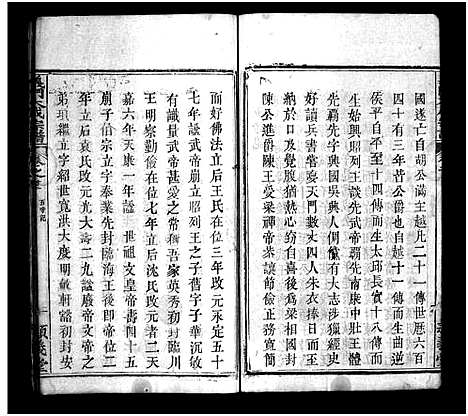 國遂亡自胡公滿主越凡二十一傳世歷六百
四十有三年苦公爵也自越一傳而生曲逆
侯平自平至十四傳而生太邱長寔十八傳
生始興昭烈王談先武帝霸先南康中壯王
先霸先字興國吳興人倜儻有大志涉獵經史
好讀兵書嘗夢天門數丈四人朱衣捧日
納於口及覺腹猶熱忽自喜後為司空封
陳公進爵陳王受梁禪帝恭讓節儉務正
而好佛法立后王氏在位三年改元永定五十
七年諡武帝崩立昭烈王之子舊字子華沉敏
有識量武帝甚愛之常稱吾家英秀初封臨川
王明察勤儉在位七年立后沈氏改元者二天
嘉六年天康一年諡 世祖文皇帝壽四十五
崩子伯宗立字奉業先封臨海王後即帝二
年立后袁氏改元光大壽二九諡廢帝文帝之
弟瑱繼立字紹世寬洪大度明敏軒豁初封安
卷之三